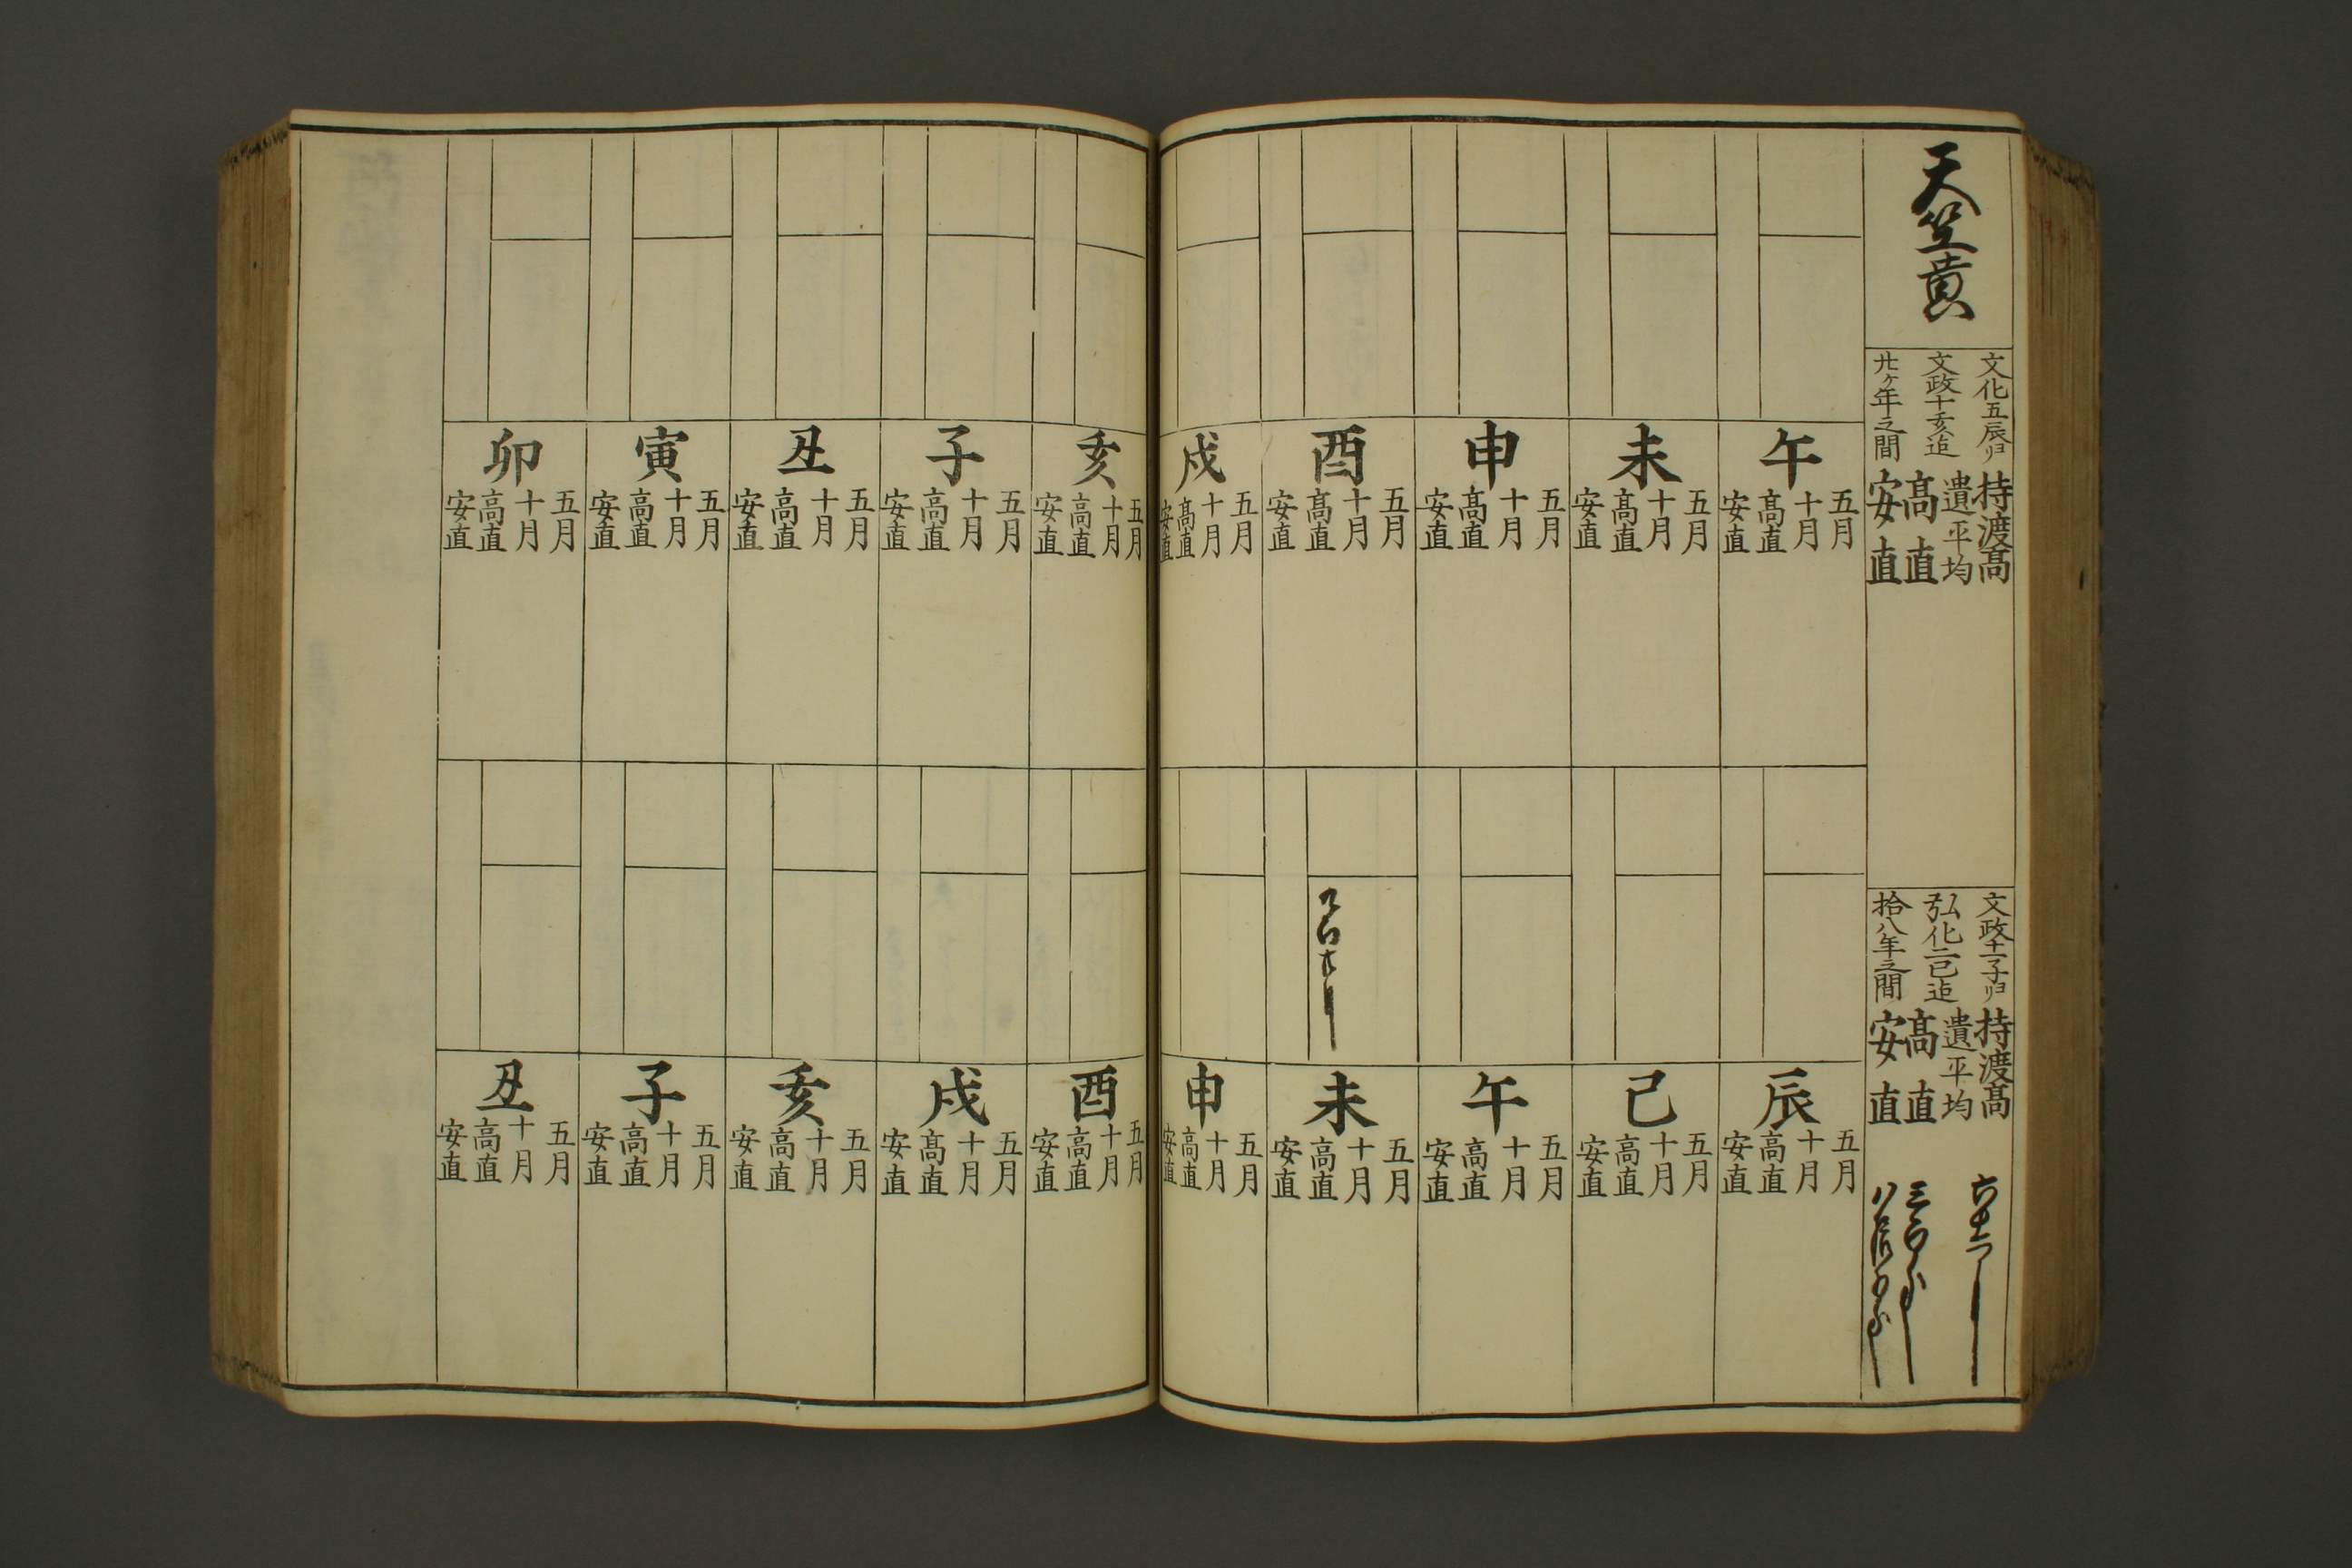 天竺黄
文化五辰ヨリ
文政十亥迄
廿ヶ年之間
持渡高
遺平均
高直
安直
文政十一子ヨリ
弘化二巳迄
拾八年之間
持渡高
遺平均
高直
安直
午
五月
十月
高直
安直
未
五月
十月
高直
安直
申
五月
十月
高直
安直
酉
五月
十月
高直
安直
戌
五月
十月
高直
安直
亥
五月
十月
高直
安直
子
五月
十月
高直
安直
丑
五月
十月
高直
安直
寅
五月
十月
高直
安直
卯
五月
十月
高直
安直
辰
五月
十月
高直
安直
巳
五月
十月
高直
安直
午
五月
十月
高直
安直
未
五月
十月
高直
安直
申
五月
十月
高直
安直
酉
五月
十月
高直
安直
戌
五月
十月
高直
安直
亥
五月
十月
高直
安直
子
五月
十月
高直
安直
丑
五月
十月
高直
安直